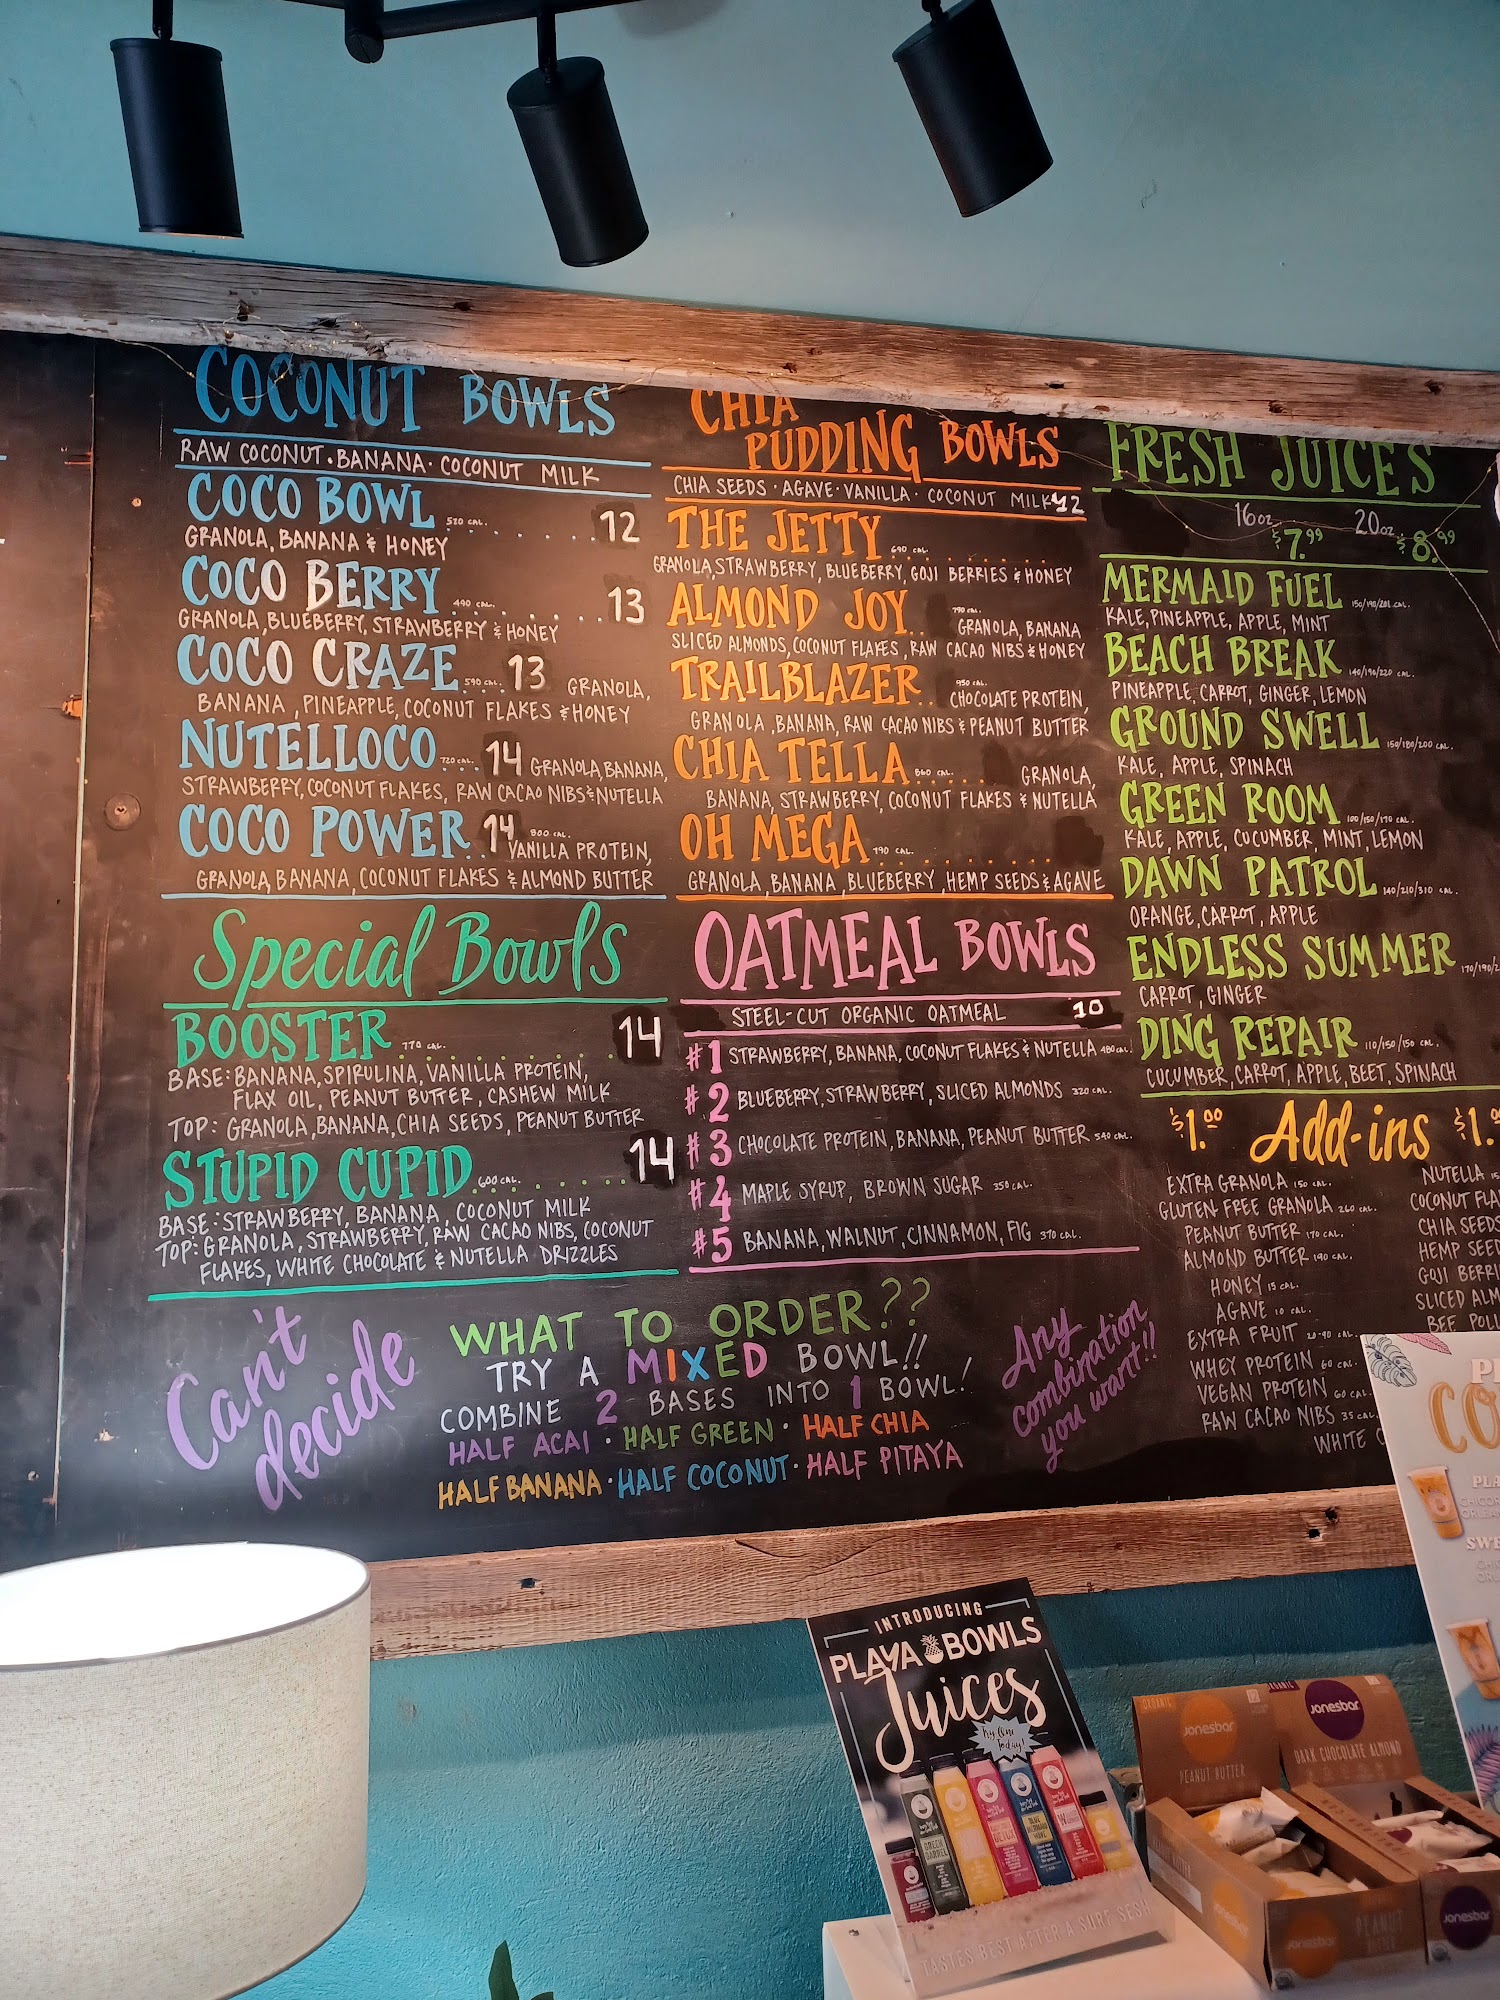 COCONUT BOWLS
RAW COCONUT · BANANA · COCONUT MILK
COCO BOWL 520 CAL. 12
GRANOLA, BANANA & HONEY
COCO BERRY 490 CAL. 13
GRANOLA, BLUEBERRY, STRAWBERRY & HONEY
COCO CRAZE 590 CAL. 13 GRANOLA,
BANANA, PINEAPPLE, COCONUT FLAKES & HONEY
NUTELLOCO 720 CAL. 14 GRANOLA, BANANA,
STRAWBERRY, COCONUT FLAKES, RAW CACAO NIBS & NUTELLA
COCO POWER 14 800 CAL.
VANILLA PROTEIN,
GRANOLA, BANANA, COCONUT FLAKES & ALMOND BUTTER
Special Bowls
BOOSTER 770 CAL. 14
BASE: BANANA, SPIRULINA, VANILLA PROTEIN,
FLAX OIL, PEANUT BUTTER, CASHEW MILK
TOP: GRANOLA, BANANA, CHIA SEEDS, PEANUT BUTTER
STUPID CUPID 600 CAL. 14
BASE: STRAWBERRY, BANANA, COCONUT MILK
TOP: GRANOLA, STRAWBERRY, RAW CACAO NIBS, COCONUT
FLAKES, WHITE CHOCOLATE & NUTELLA DRIZZLES
CHIA
PUDDING BOWLS
CHIA SEEDS · AGAVE · VANILLA · COCONUT MILK 12
THE JETTY 690 CAL.
GRANOLA, STRAWBERRY, BLUEBERRY, GOJI BERRIES & HONEY
ALMOND JOY 790 CAL.
GRANOLA, BANANA
SLICED ALMONDS, COCONUT FLAKES, RAW CACAO NIBS & HONEY
TRAILBLAZER 950 CAL.
CHOCOLATE PROTEIN,
GRANOLA, BANANA, RAW CACAO NIBS & PEANUT BUTTER
CHIA TELLA 860 CAL. GRANOLA,
BANANA, STRAWBERRY, COCONUT FLAKES & NUTELLA
OH MEGA 790 CAL.
GRANOLA, BANANA, BLUEBERRY, HEMP SEEDS & AGAVE
OATMEAL BOWLS
STEEL-CUT ORGANIC OATMEAL 10
#1 STRAWBERRY, BANANA, COCONUT FLAKES & NUTELLA 480 CAL.
#2 BLUEBERRY, STRAWBERRY, SLICED ALMONDS 320 CAL.
#3 CHOCOLATE PROTEIN, BANANA, PEANUT BUTTER 540 CAL.
#4 MAPLE SYRUP, BROWN SUGAR 350 CAL.
#5 BANANA, WALNUT, CINNAMON, FIG 370 CAL.
FRESH JUICES
16oz. $7.99 20oz. $8.99
MERMAID FUEL 150/190/201 CAL.
KALE, PINEAPPLE, APPLE, MINT
BEACH BREAK 140/190/220 CAL.
PINEAPPLE, CARROT, GINGER, LEMON
GROUND SWELL 150/180/200 CAL.
KALE, APPLE, SPINACH
GREEN ROOM 100/150/170 CAL.
KALE, APPLE, CUCUMBER, MINT, LEMON
DAWN PATROL 140/210/310 CAL.
ORANGE, CARROT, APPLE
ENDLESS SUMMER 170/190/2
CARROT, GINGER
DING REPAIR 110/150/150 CAL.
CUCUMBER, CARROT, APPLE, BEET, SPINACH
$1.00 Add-ins $1.
EXTRA GRANOLA 150 CAL.
GLUTEN FREE GRANOLA 260 CAL.
PEANUT BUTTER 170 CAL.
ALMOND BUTTER 190 CAL.
HONEY 15 CAL.
AGAVE 10 CAL.
EXTRA FRUIT 20-90 CAL.
WHEY PROTEIN 60 CAL.
VEGAN PROTEIN 60 CAL.
RAW CACAO NIBS 35 CAL.
WHITE C
NUTELLA 15
COCONUT FLA
CHIA SEEDS
HEMP SEED
GOJI BERRI
SLICED ALM
BEE POLL
Can't
decide
WHAT TO ORDER??
TRY A MIXED BOWL!!
COMBINE 2 BASES INTO 1 BOWL!
HALF ACAI · HALF GREEN · HALF CHIA
HALF BANANA · HALF COCONUT · HALF PITAYA
Any
combination
you want!!
INTRODUCING
PLAYA BOWLS
Juices
Try One
Today!
GREEN
BARREL
DETOX
BLUE
MERMAID
TASTES BEST AFTER A SURF SESH
ORGANIC
Jonesbar
PEANUT BUTTER
Jonesbar
DARK CHOCOLATE ALMOND
Jonesbar
PEANUT
BUTTER
Jonesbar
CO
PLA
SWE